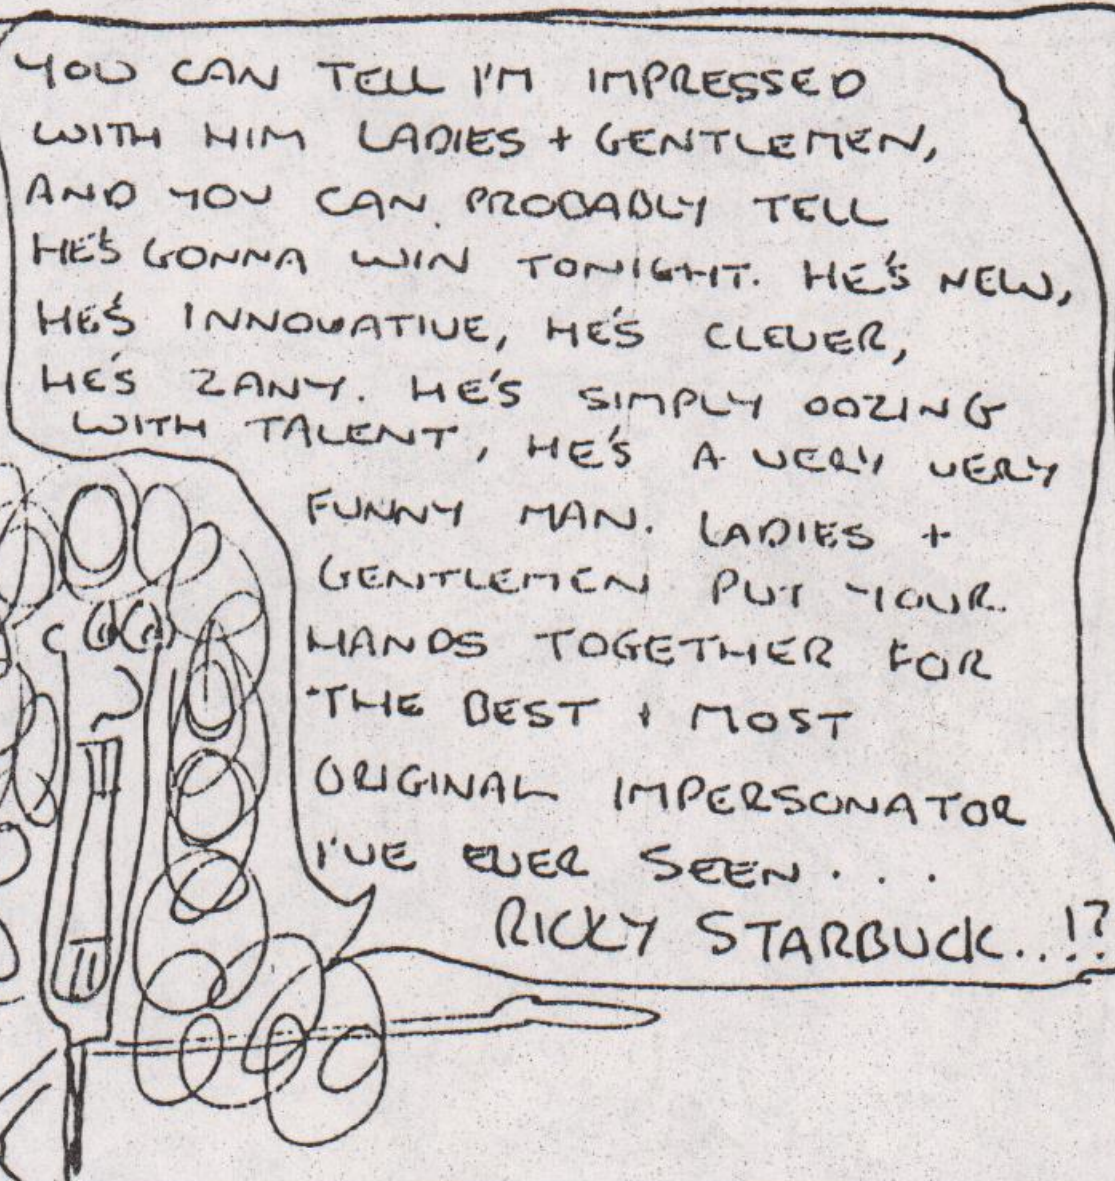 YOU CAN TELL I'M IMPRESSED
WITH HIM LADIES + GENTLEMEN,
AND YOU CAN PROBABLY TELL
HE'S GONNA WIN TONIGHT. HE'S NEW,
HE'S INNOVATIVE, HE'S CLEVER,
HE'S ZANY. HE'S SIMPLY OOZING
WITH TALENT, HE'S A VERY VERY
FUNNY MAN. LADIES +
GENTLEMEN PUT YOUR
HANDS TOGETHER FOR
THE BEST + MOST
ORIGINAL IMPERSONATOR
I'VE EVER SEEN...
RICKY STARBUCK..!?